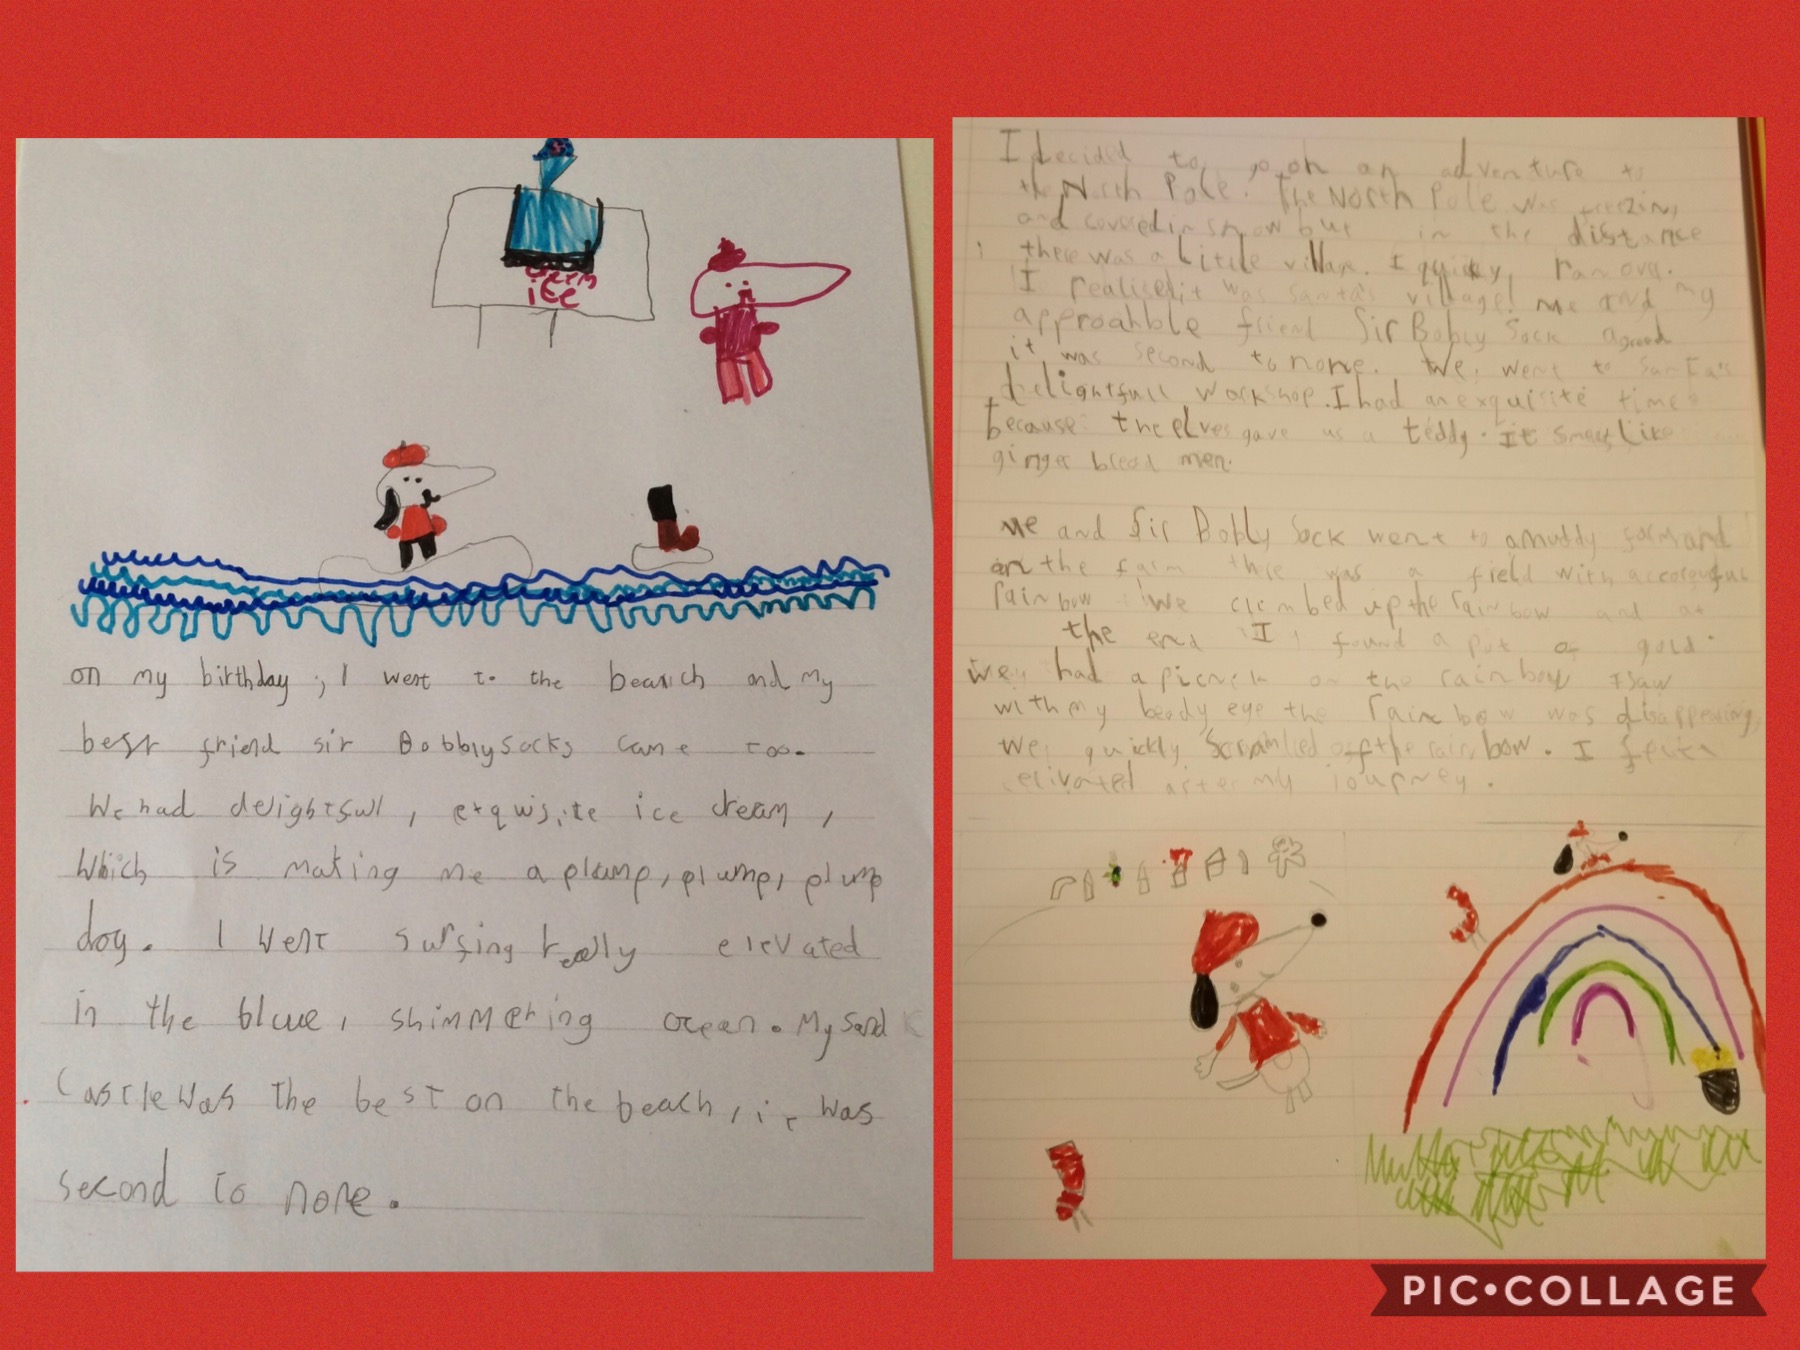 cream
ice
on my birthday, I went to the bearich and my
best friend sir Bobblysocks came too.
We had delightfull, exquisite ice cream,
Which is making me a plump, plump, plump
dog. I went surfing really elevated
in the blue, shimmering ocean. My sand
Castle was the best on the beach, it was
second to none.
I decided to go on an adventure to
the North Pole. The North Pole was freezing
and covered in snow but in the distance
there was a little village. I quickly ran over.
I realised it was santa's village! me and my
approahble friend Sir Bobbly Sock agreed
it was second to none. We went to Santa's
delightfull workshop. I had an exquisite time
because the elves gave us a teddy. It smelt like
ginger bread men.
me and Sir Bobly Sock went to a muddy farm and
on the farm there was a field with a colourful
rainbow. We climbed up the rainbow and at
the end I found a pot of gold.
We had a picnick on the rainbow I saw
with my beady eye the rainbow was disappering,
we quickly scrambled off the rainbow. I felt
elivated after my journey.
PIC•COLLAGE